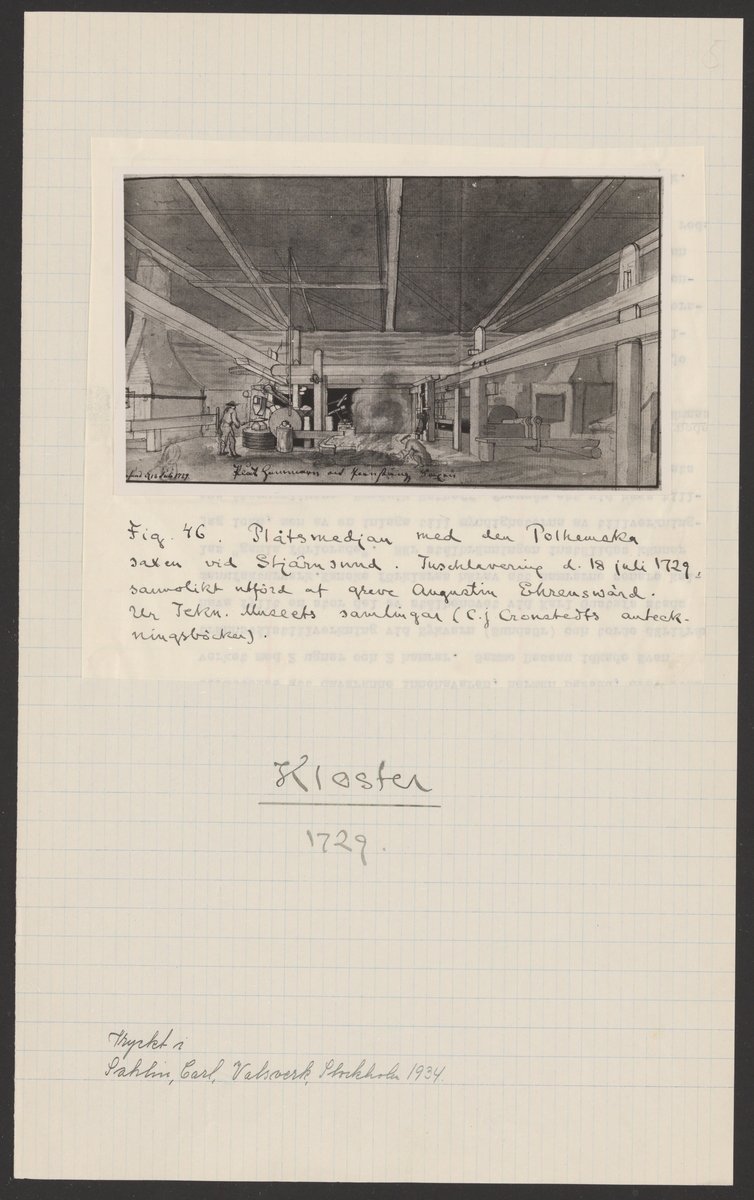 5
Plåt Hammaren med
Fig. 46. Plåtsmedjan med den Polhemska
saxen vid Stjärnsund. Tuschlavering d. 18 juli 1729,
sannolikt utförd af greve Augustin Ehrenswärd.
Ur Tekn. Museets samlingar (C.J Cronstedts anteck-
ningsböcker).
Kloster
1729.
Tryckt i
Sahlin, Carl, Valsverk, Stockholm 1934.